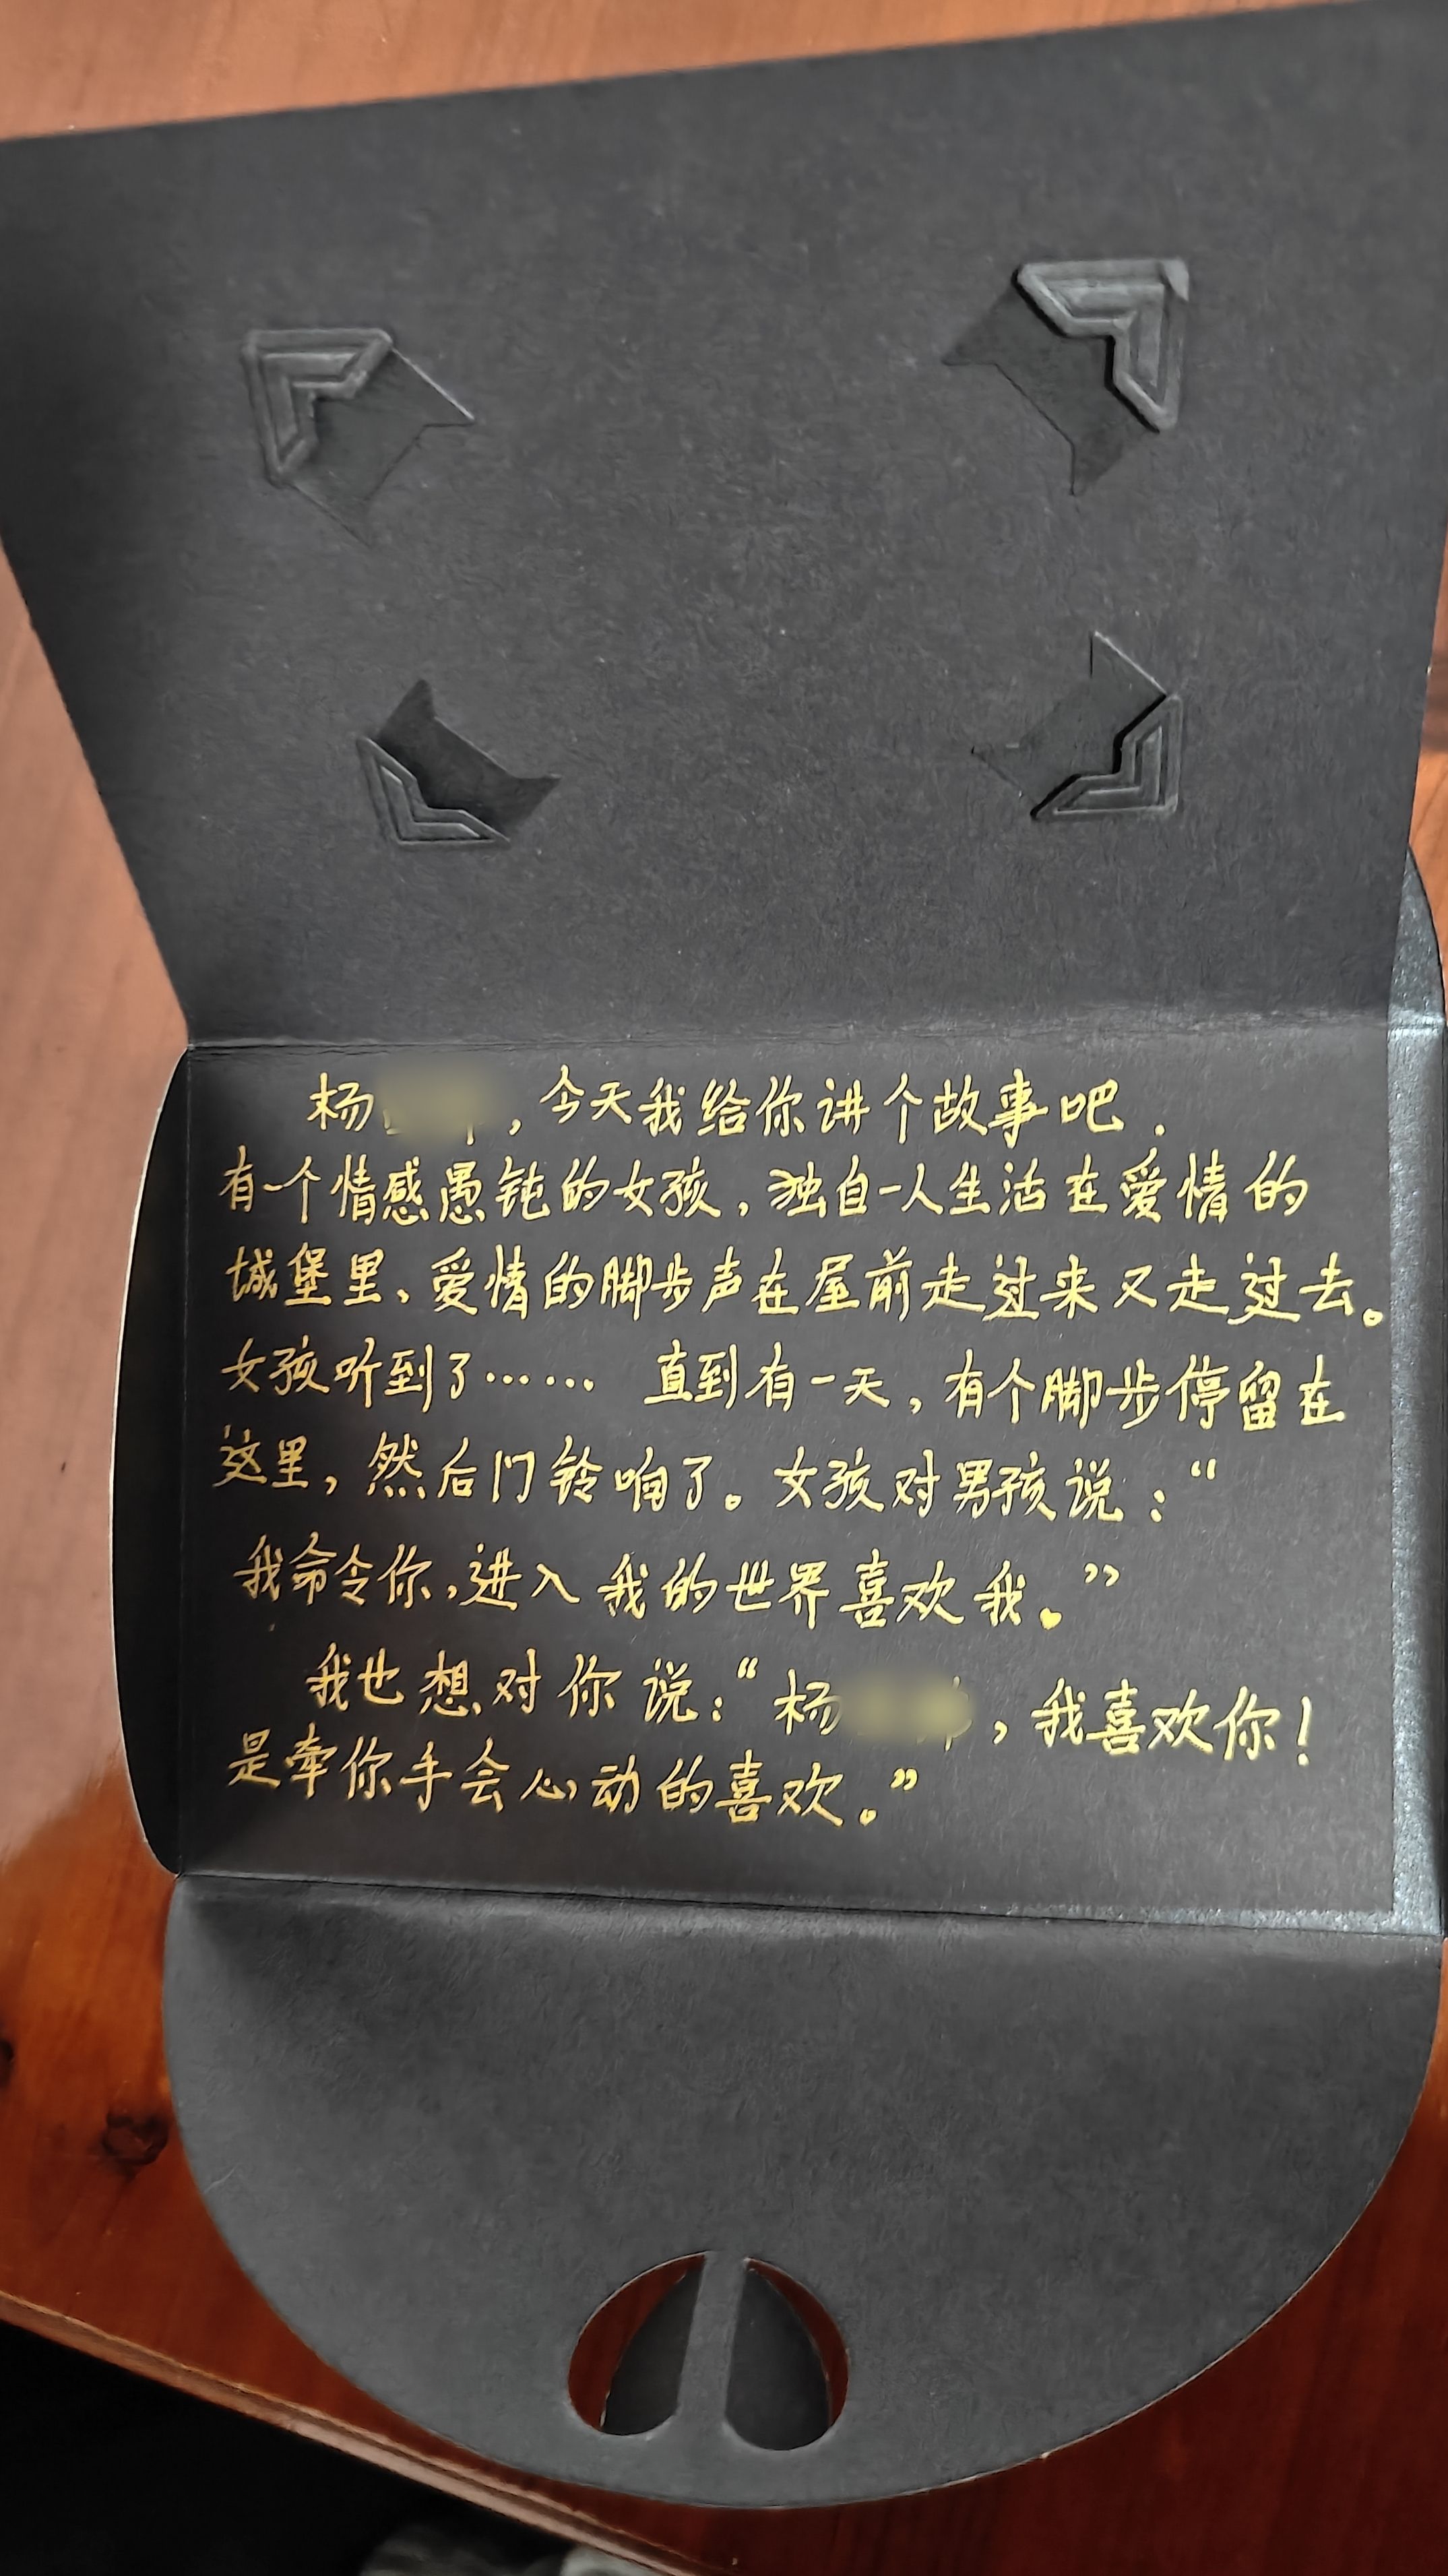 杨 ，今天我给你讲个故事吧．
有一个情感愚钝的女孩，独自一人生活在爱情的
城堡里、爱情的脚步声在屋前走过来又走过去。
女孩听到了…… 直到有一天，有个脚步停留在
这里，然后门铃响了。女孩对男孩说：“
我命令你，进入我的世界喜欢我。”
我也想对你说：“杨 ，我喜欢你！
是牵你手会心动的喜欢。”